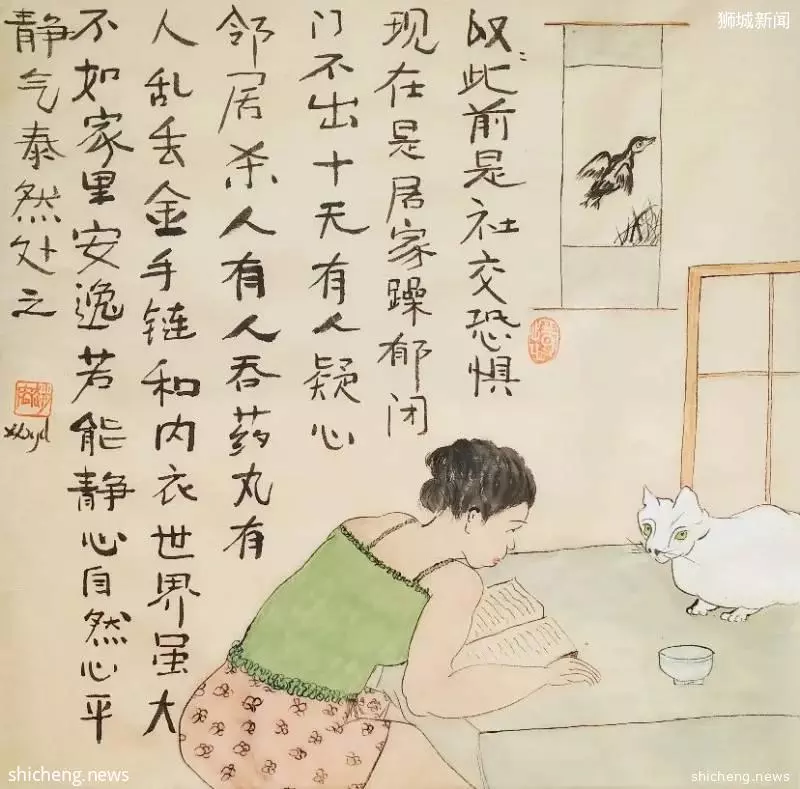 狮城新闻
此前是社交恐惧
现在是居家躁郁闭
门不出十天有人疑心
邻居杀人有人吞药丸有
人乱丢金手链和内衣世界虽大
不如家里安逸若能静心自然心平
静气泰然处之
shicheng.news
shicheng.news